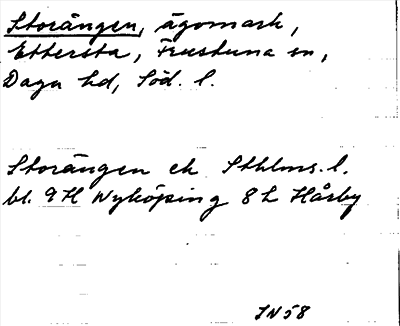 Storängen, ägomark,
Ettersta, Frustuna sn,
Daga hd, Söd. l.
Storängen ek Sthlms. l.
bl. 9H Nyköping 8 h Hårby
IN 58